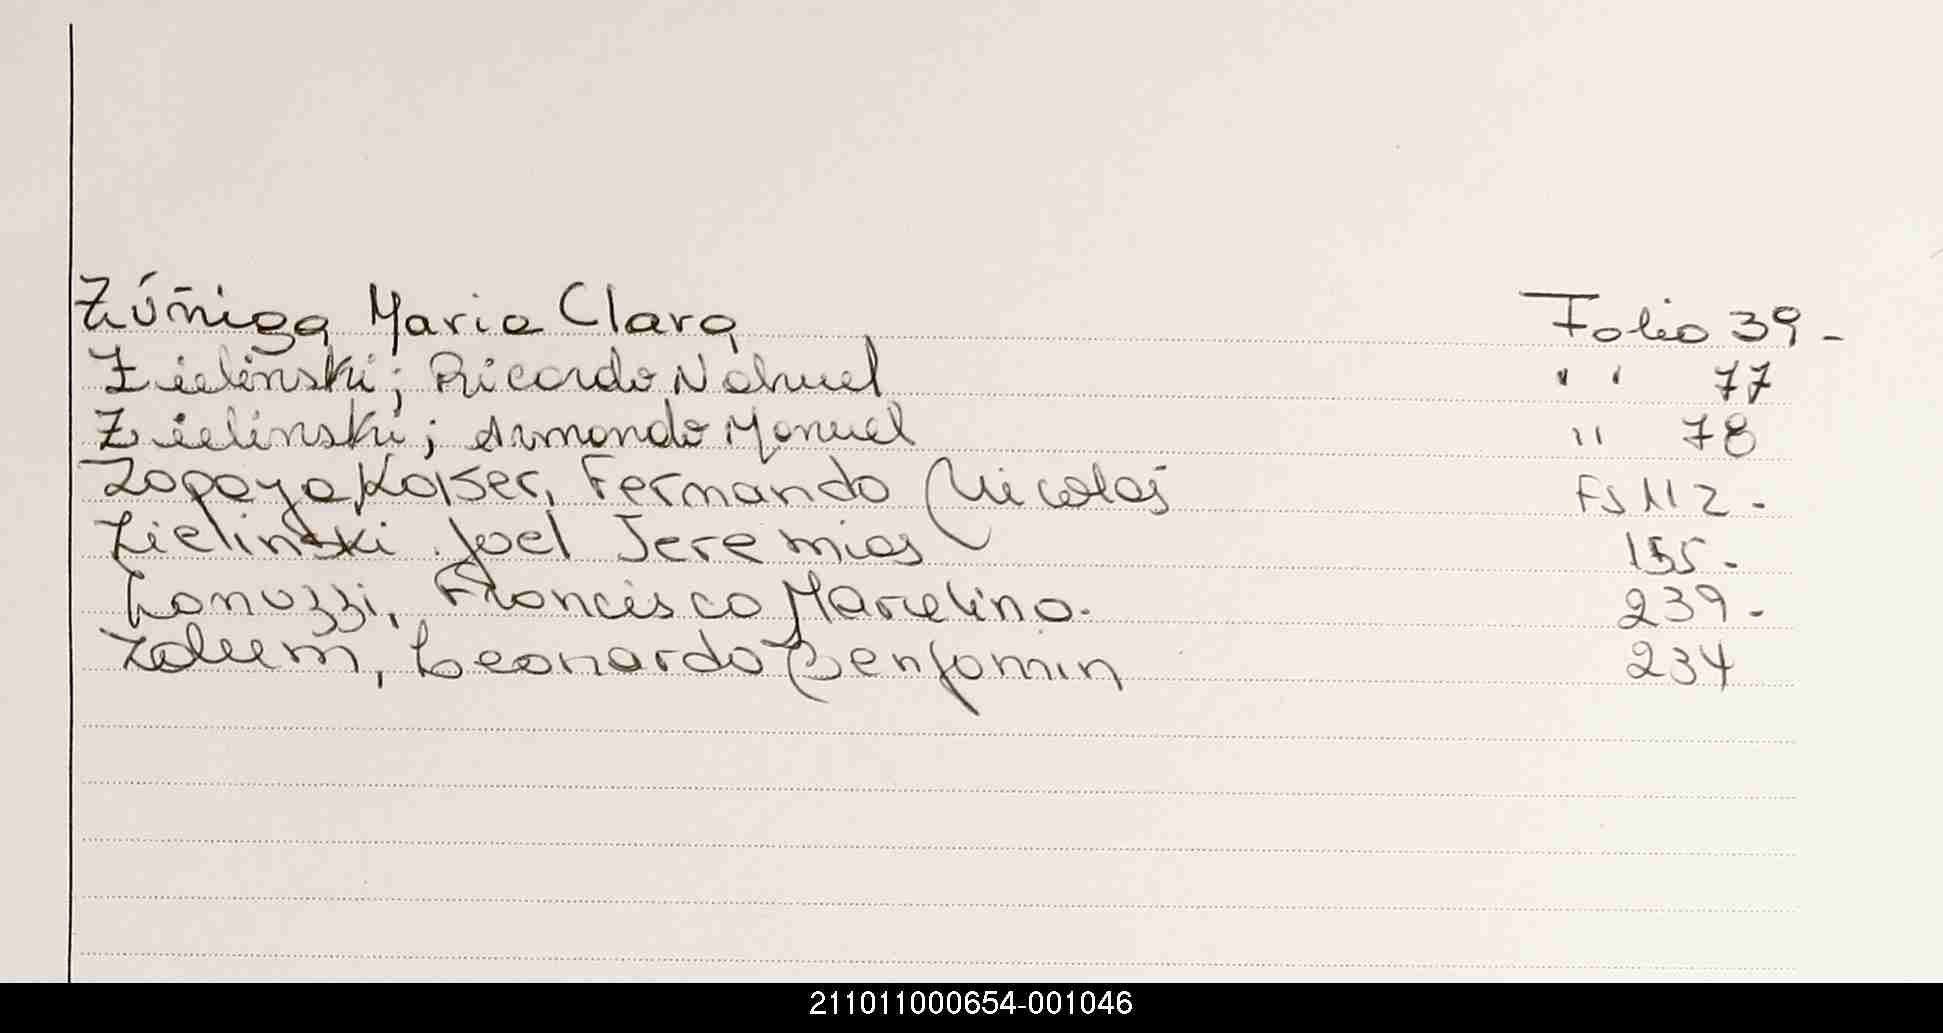 Zúñiga Maria Clara Folio 39-
Zielinski; Ricardo Nahuel " " 77
Zielinski; Armando Manuel " 78
Zapaya Kaiser, Fernando Nicolas Fs 112-
Zielinski Joel Jeremias 155-
Zanuzzi, Francisco Marcelino. 239-
Leonardo Benjamin 234
211011000654-001046